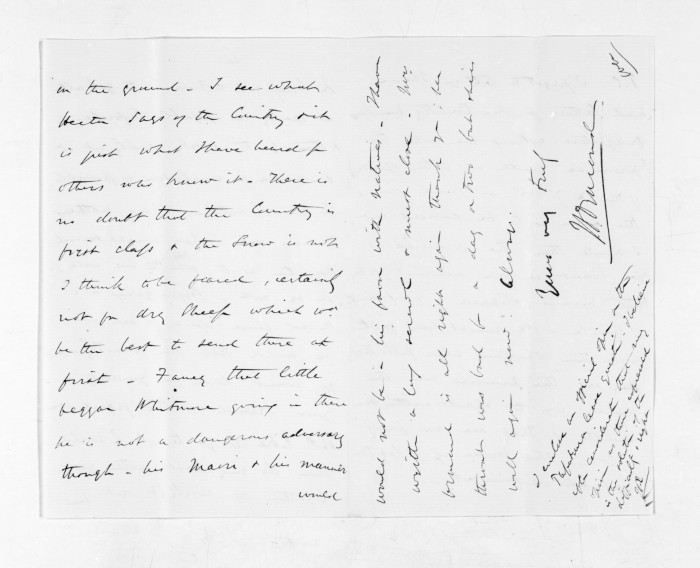 on the ground - I see what
Hector says of the Country &
is just what I have heard fm
others who knew it - There is
no doubt that the Country is
first class & the Snow is not
I think to be feared, certainly
not for dry Sheep which wd
be the best to send there at
first - Fancy that little
beggar Whitmore going in there
he is not a dangerous adversary
though - his Maori & his manner
would
would not be in his favor with Natives. I have
written a long scrawl & must close - Mrs
Ormond is all right again thank you; her
throat was bad for a day or two but she is
well again now. Always
Yours very truly
J.D. Ormond
I enclose an
the
is the